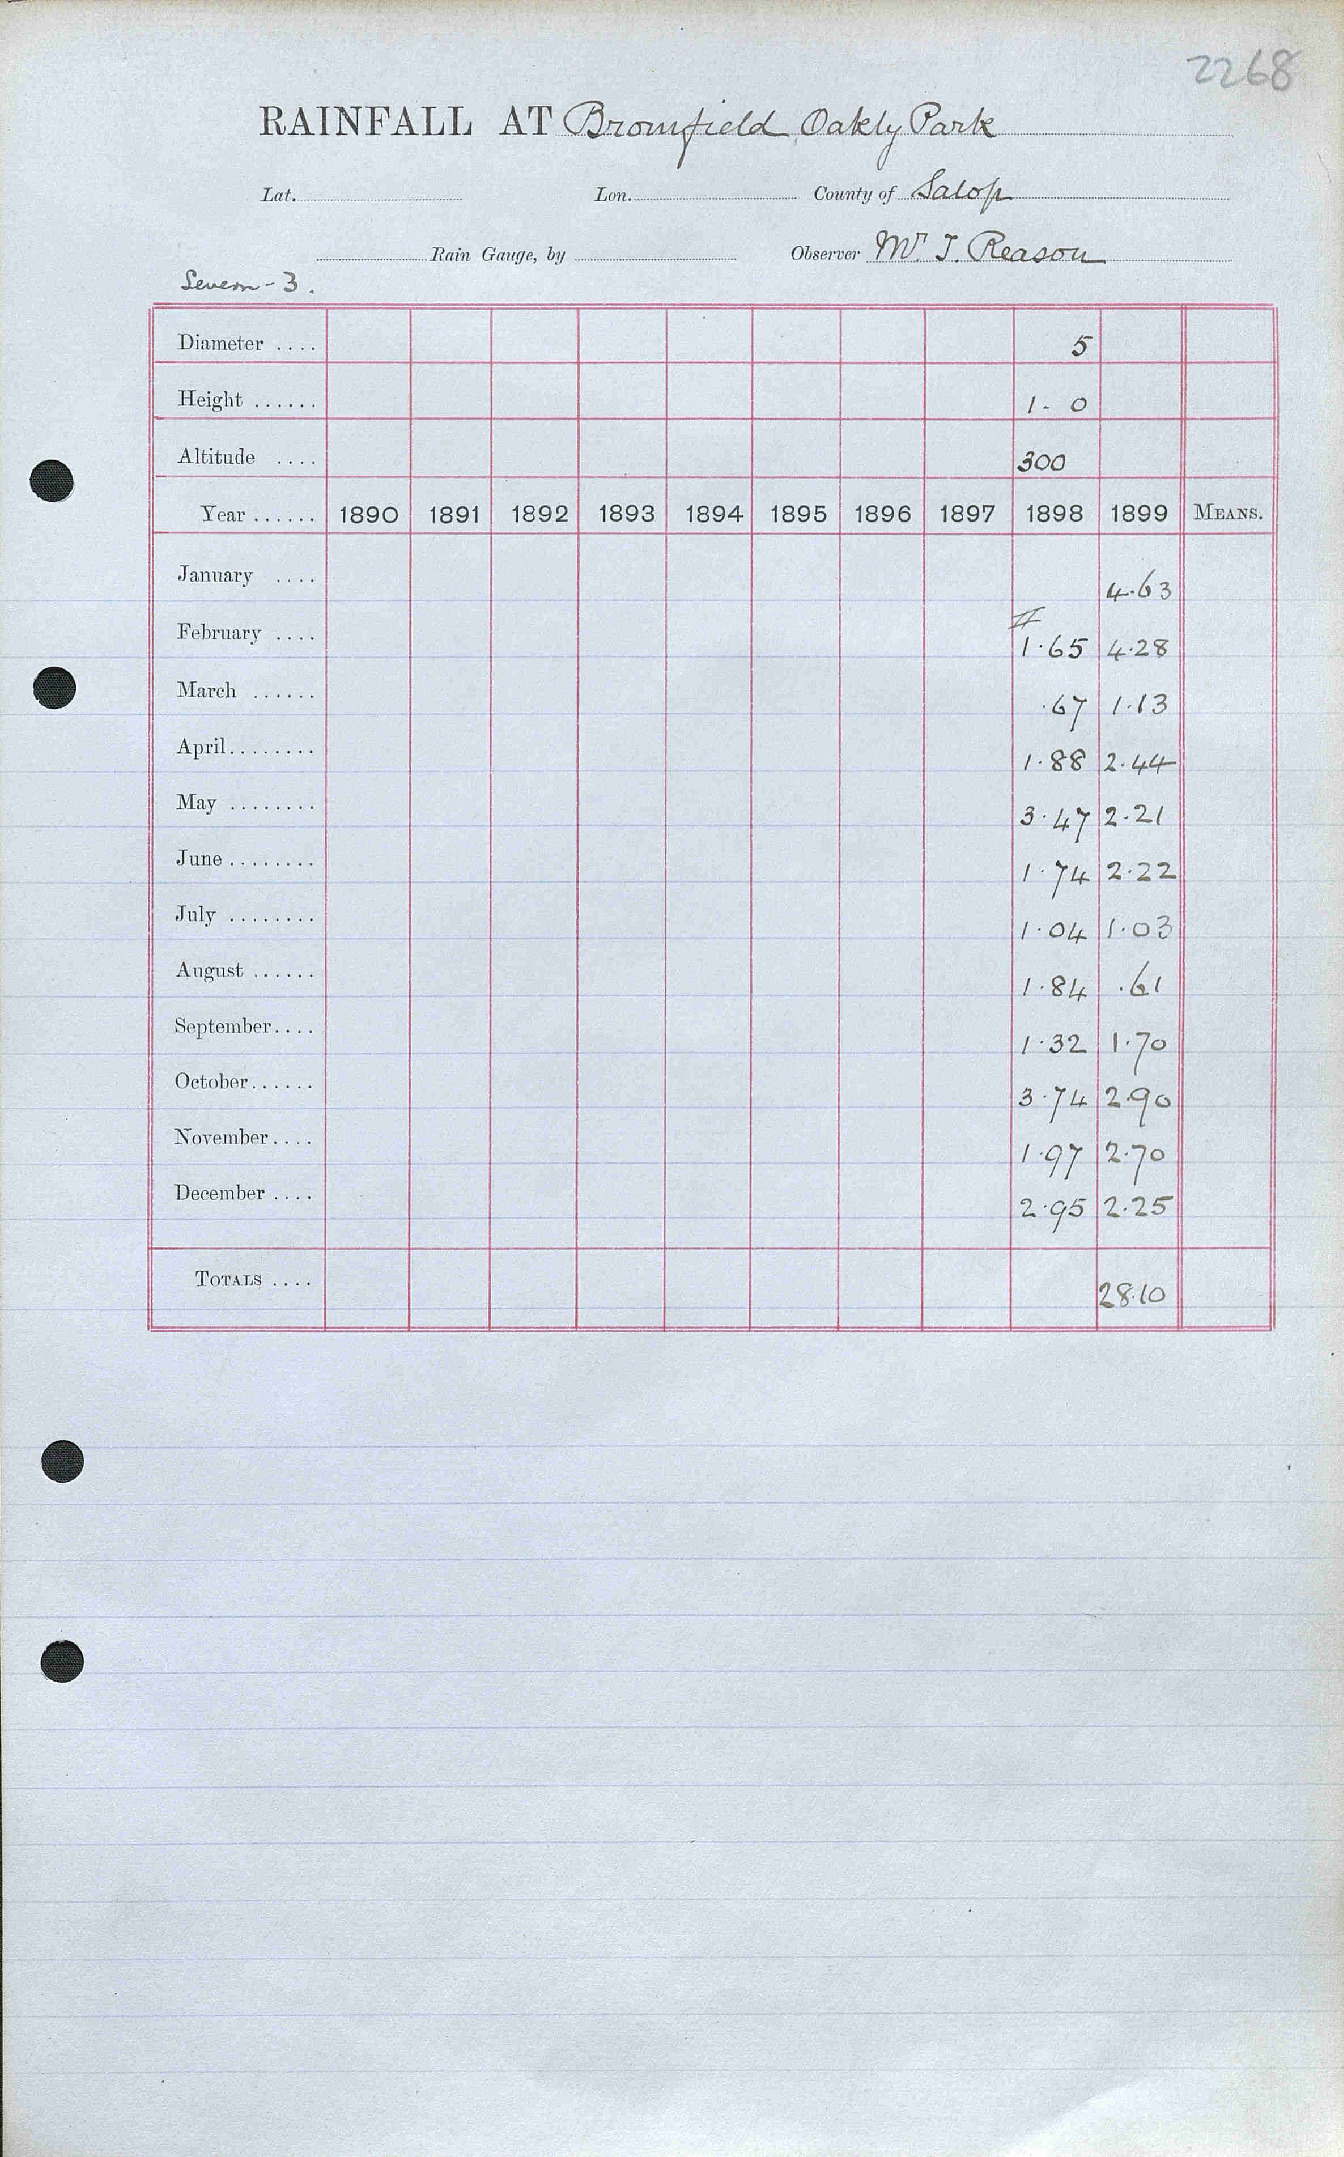 2268
RAINFALL AT Bromfield, Oakly Park
Lat. Lon. County of Salop
Rain Gauge, by Observer Mr. J. Reason
Severn - 3.
Diameter .... 5
Height ...... 1 - 0
Altitude .... 300
Year ...... 1890 1891 1892 1893 1894 1895 1896 1897 1898 1899 MEANS.
January .... 4.63
February .... 1.65 4.28
March ...... .67 1.13
April........ 1.88 2.44
May ........ 3.47 2.21
June ........ 1.74 2.22
July ........ 1.04 1.03
August ...... 1.84 .61
September.... 1.32 1.70
October...... 3.74 2.90
November.... 1.97 2.70
December .... 2.95 2.25
TOTALS .... 28.10